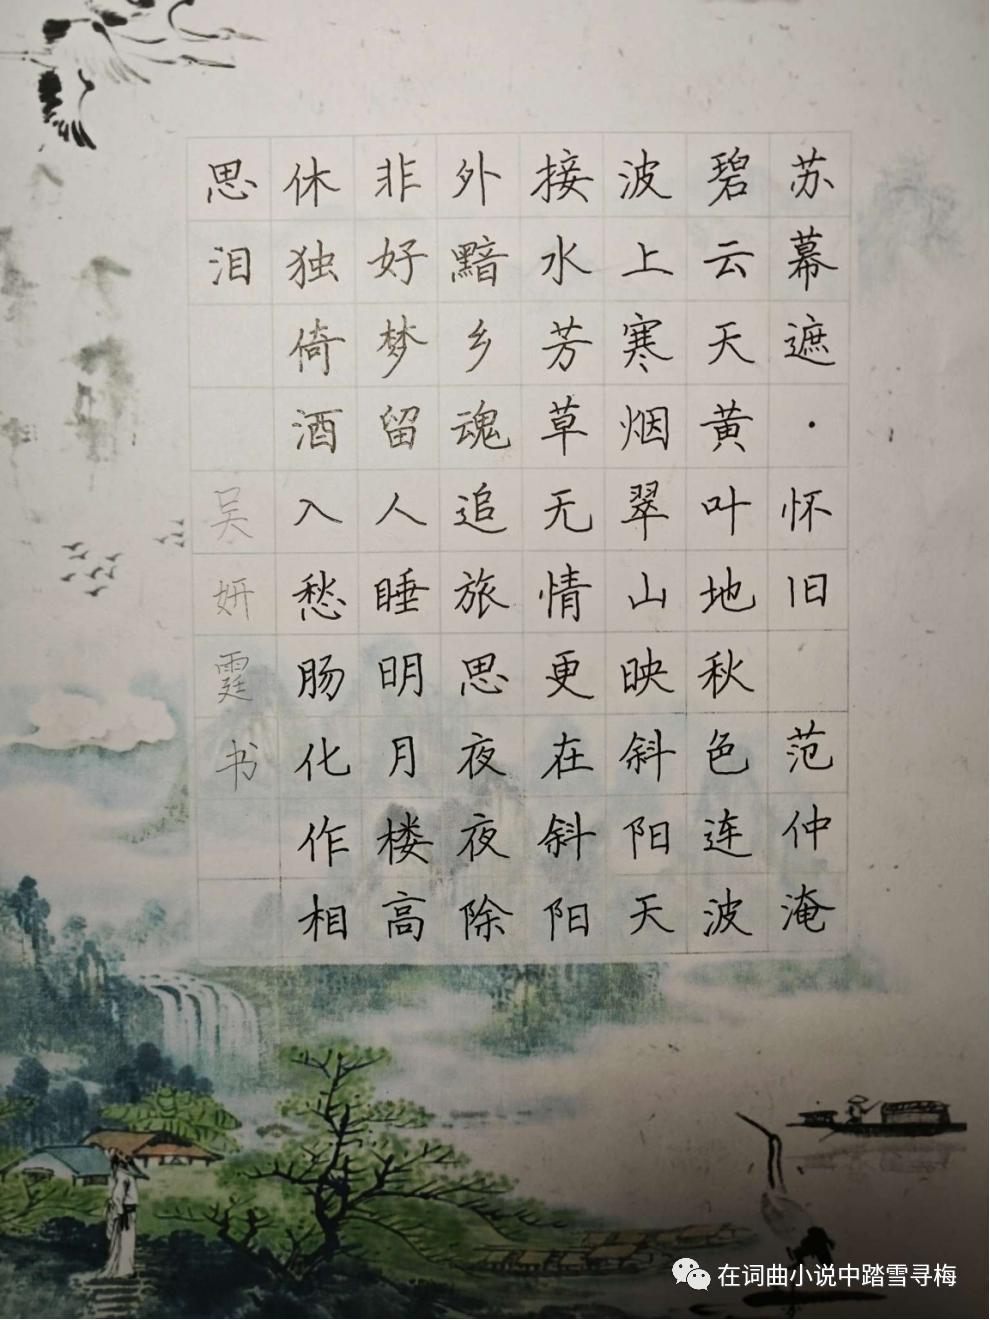 苏幕遮·怀旧 范仲淹
碧云天黄叶地秋色连波
波上寒烟翠山映斜阳天
接水芳草无情更在斜阳
外黯乡魂追旅思夜夜除
非好梦留人睡明月楼高
休独倚酒入愁肠化作相
思泪 吴妍霆书
在词曲小说中踏雪寻梅